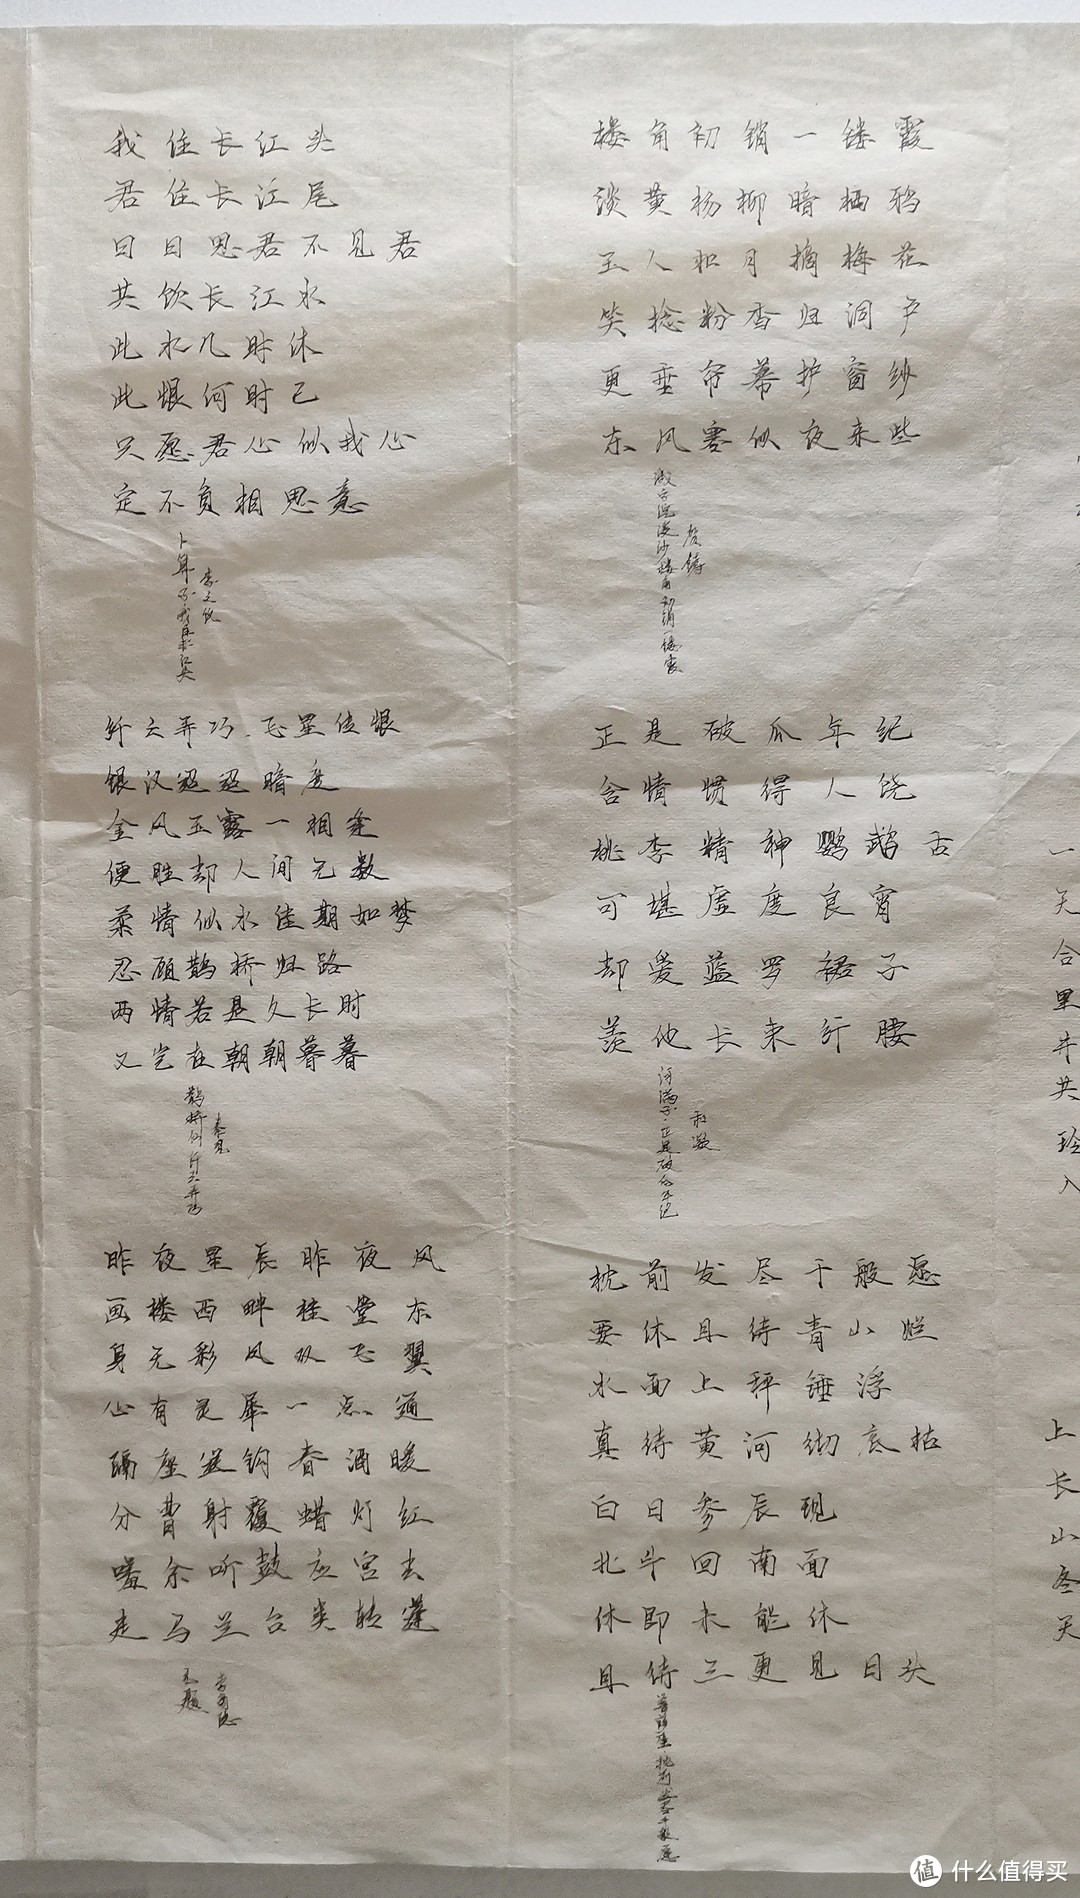 我住长江头
君住长江尾
日日思君不见君
共饮长江水
此水几时休
此恨何时已
只愿君心似我心
定不负相思意
卜算子我住长江头
李之仪
纤云弄巧.飞星传恨
银汉迢迢暗度
金风玉露一相逢
便胜却人间无数
柔情似水佳期如梦
忍顾鹊桥归路
两情若是久长时
又岂在朝朝暮暮
鹊桥仙纤云弄巧
秦观
昨夜星辰昨夜风
画楼西畔桂堂东
身无彩凤双飞翼
心有灵犀一点通
隔座送钩春酒暖
分曹射覆蜡灯红
嗟余听鼓应官去
走马兰台类转蓬
无题
李商隐
楼角初销一缕霞
淡黄杨柳暗栖鸦
玉人和月摘梅花
笑捻粉香归洞户
更垂帘幕护窗纱
东风寒似夜来些
浣沙楼角初销一缕霞
贺铸
正是破瓜年纪
含情惯得人饶
桃李精神鹦鹉舌
可堪虚度良宵
却爱蓝罗裙子
羡他长束纤腰
河满子·正是破瓜年纪
和凝
枕前发尽千般愿
要休且待青山烂
水面上秤锤浮
真待黄河彻底枯
白日参辰现
北斗回南面
休即未能休
且待三更见日头
菩萨蛮·枕前发尽千般愿
一
天
合
里
共
入
上
长
山
冬
天
值 什么值得买